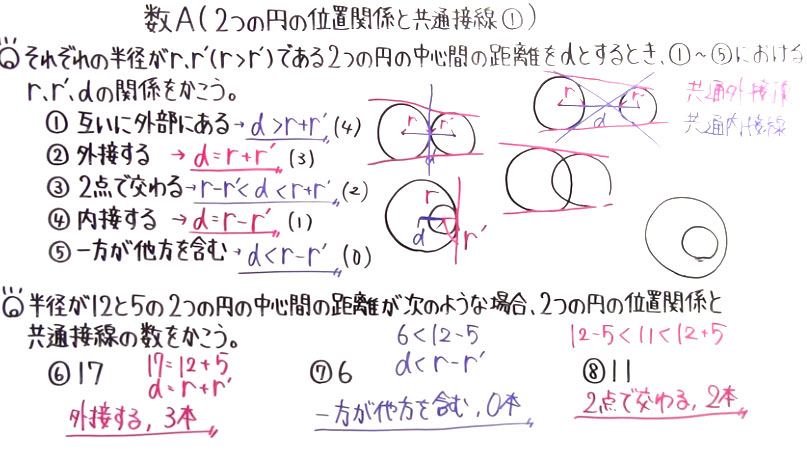 数A(2つの円の位置関係と共通接線①)
Q それぞれの半径がr,r'(r>r')である2つの円の中心間の距離をdとするとき、①~⑤における
r、r'、dの関係をかこう。
① 互いに外部にある→d>r+r' (4)
② 外接する → d=r+r' (3)
③ 2点で交わる→r-r'<d<r+r' (2)
④ 内接する → d=r-r' (1)
⑤ 一方が他方を含む→d<r-r' (0)
r r'
d
r r'
d
共通外接線
共通内接線
r
d
r'
Q 半径が12と5の2つの円の中心間の距離が次のような場合、2つの円の位置関係と
共通接線の数をかこう。
⑥17
17=12+5
d=r+r'
外接する, 3本
⑦6
6<12-5
d<r-r'
一方が他方を含む, 0本
⑧11
12-5<11<12+5
2点で交わる, 2本